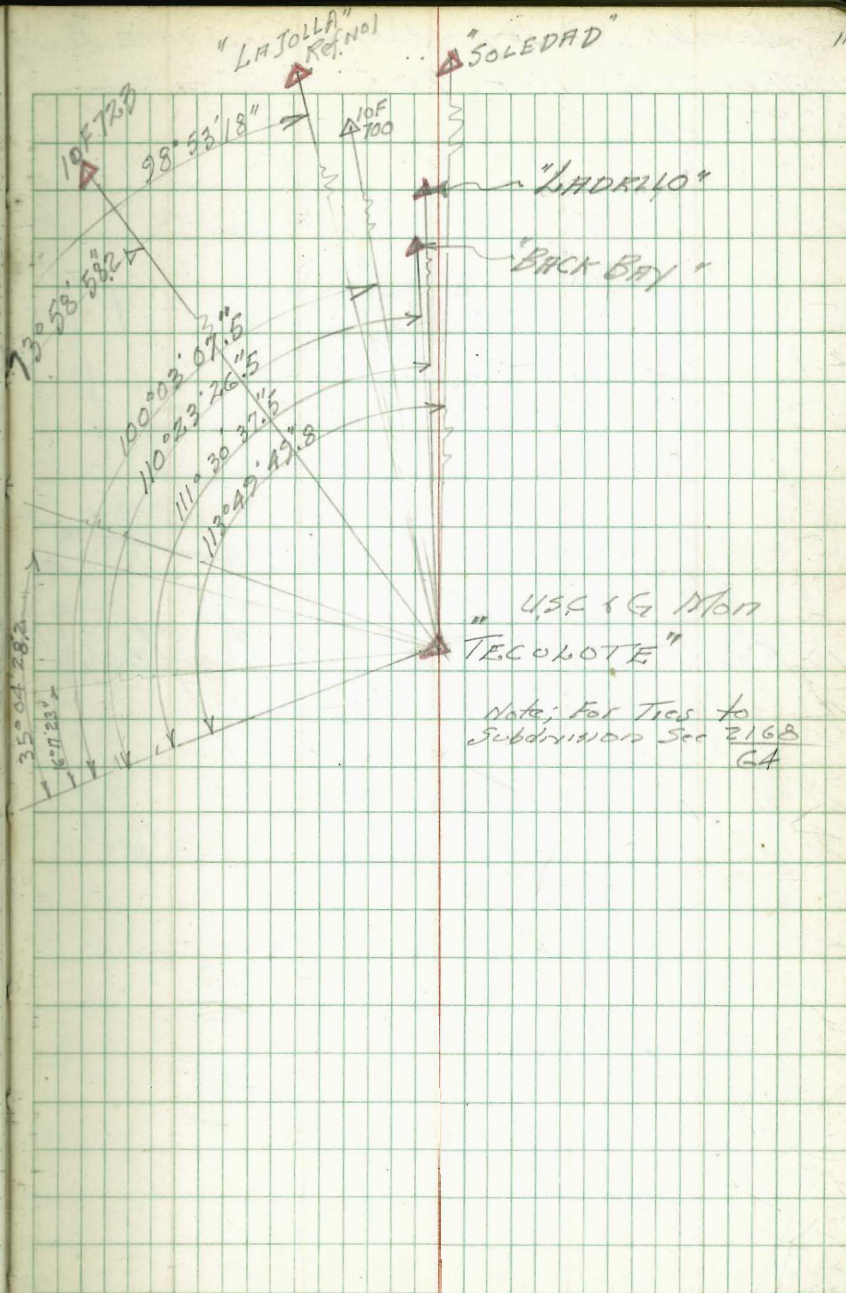 "LA JOLLA"
Ref. No 1
"SOLEDAD"
10F 723
98° 53' 18"
10F
700
"LADRILLO"
"BACK BAY"
73° 58' 58.2"
100° 03' 07".5
110° 23' 26".5
111° 30' 37".5
113° 49' 49".8
35° 04' 28.2
U.S.C & G Mon
"TECOLOTE"
Note; For Ties to
Subdivision See 2168
64